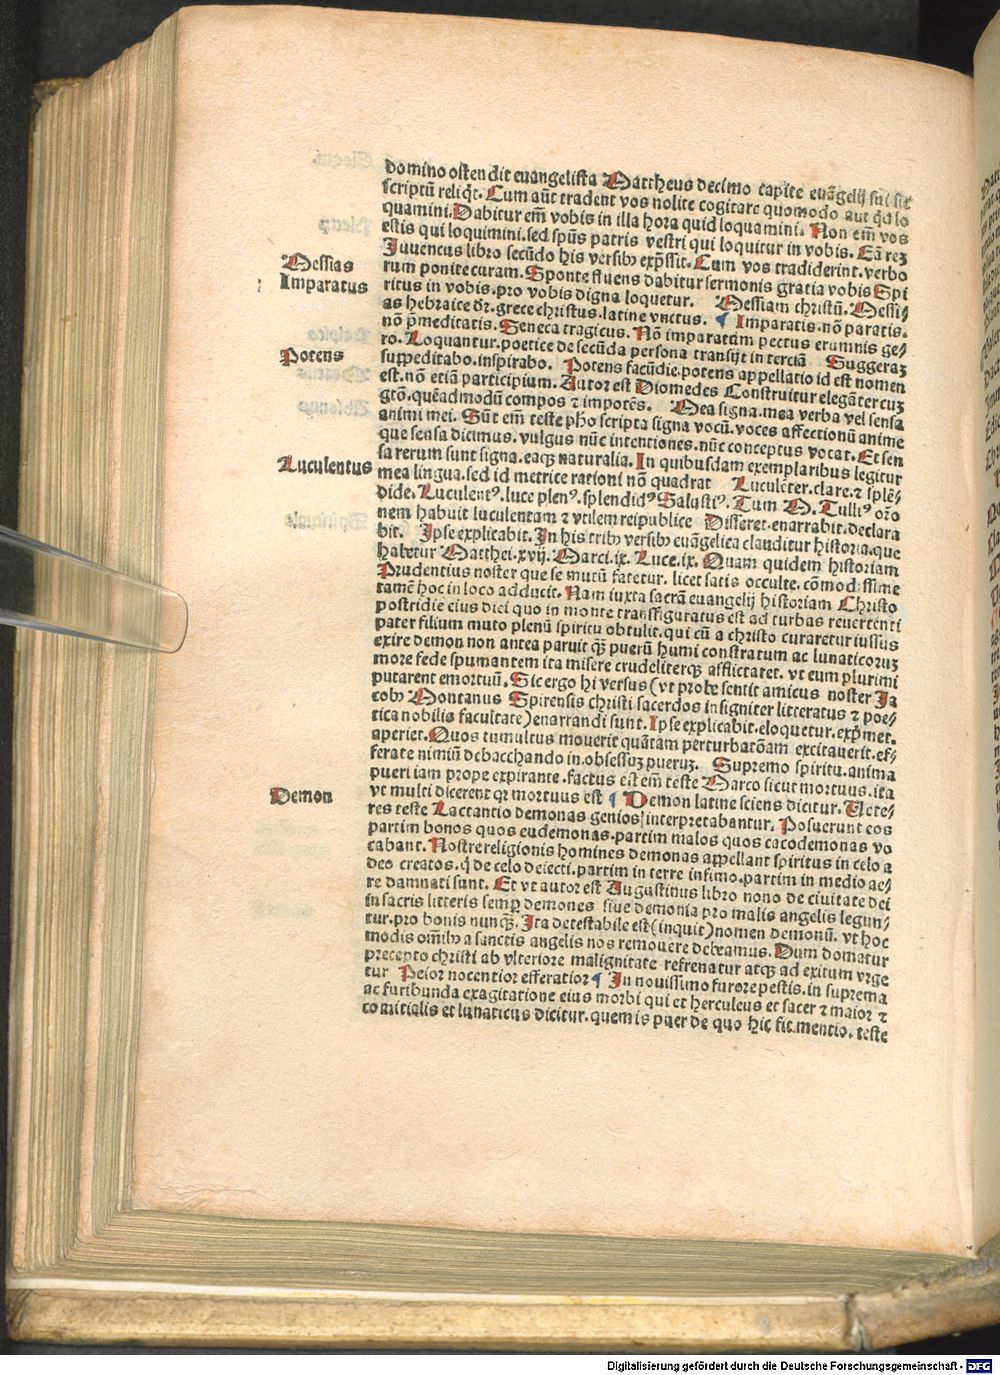 domino ostendit euangelista Mattheus decimo capite euãgelij sui sic
scriptũ reliq̃t. Cum aũt tradent vos nolite cogitare quomodo aut q̃d lo
quamini. Dabitur em̃ vobis in illa hora quid loquamini. Non em̃ vos
estis qui loquimini. sed spũs patris vestri qui loquitur in vobis. Eã reꝫ
Juuencus libro secũdo his versibꝰ exp̃ssit. Cum vos tradiderint. verbo
Messias
rum ponite curam. Sponte fluens dabitur sermonis gratia vobis Spi
Imparatus
ritus in vobis. pro vobis digna loquetur. Messiam christũ. Messi⸗
as hebraice dr̃. grece christus. latine vnctus. ¶ Imparatis. nõ paratis.
nõ p̃meditatis. Seneca tragicus. Nõ imparatum pectus erumnis ge⸗
ro. Loquantur. poetice de secũda persona transijt in terciã Suggeraꝫ
Potens
suppeditabo. inspirabo. Potens facũdie. potens appellatio id est nomen
est. nõ etiã participium. Autor est Diomedes Construitur elegãter cuꝫ
gtõ. quẽadmodũ compos ⁊ impotẽs. Mea signa. mea verba vel sensa
animi mei. Sũt em̃ teste pho scripta signa vocũ. voces affectionũ anime
que sensa dicimus. vulgus nũc intentiones. nũc conceptus vocat. Et sen
sa rerum sunt signa. eaqꝫ naturalia. In quibusdam exemplaribus legitur
Luculentus
mea lingua. sed id metrice rationi nõ quadrat Luculẽter. clare. ⁊ splẽ⸗
dide. Luculentꝰ. luce plenꝰ. splendidꝰ Salustiꝰ. Tum M. Tulliꝰ orõ
nem habuit luculentam ⁊ vtilem reipublice Disseret. enarrabit. declara
bit. Ipse explicabit. In his tribꝰ versibꝰ euãgelica clauditur historia. que
habetur Matthei. xvij. Marci. ix. Luce. ix. Quam quidem historiam
Prudentius noster que se mutũ fatetur. licet satis occulte. cõmodissime
tamẽ hoc in loco adducit. Nam iuxta sacrã euangelij historiam Christo
postridie eius diei quo in monte transfiguratus est ad turbas reuertenti
pater filium muto plenũ spiritu obtulit. qui cũ a christo curaretur iussus
exire demon non antea paruit qꝫ puerũ humi constratum ac lunaticoruꝫ
more fede spumantem ita misere crudeliterqꝫ afflictaret. vt eum plurimi
putarent emortuũ. Sic ergo hi versus (vt probe sentit amicus noster Ja
cobꝰ Montanus Spirensis christi sacerdos insigniter litteratus ⁊ poe⸗
tica nobilis facultate) enarrandi sunt. Ipse explicabit. eloquetur. exp̃met.
aperiet. Quos tumultus mouerit quãtam perturbatõam excitauerit. ef⸗
ferate nimiũ debacchando in. obsessuꝫ pueruꝫ. Supremo spiritu. anima
pueri iam prope expirante. factus est em̃ teste Marco sicut mortuus. ita
Demon
vt multi dicerent qꝛ mortuus est ¶ Demon latine sciens dicitur. Uete⸗
res teste Lactantio demonas genios interpretabantur. Posuerunt eos
partim bonos quos eudemonas. partim malos quos cacodemonas vo
cabant. Nostre religionis homines demonas appellant spiritus in celo a
deo creatos. q̃ de celo deiecti. partim in terre infimo. partim in medio ae⸗
re damnati sunt. Et vt autor est Augustinus libro nono de ciuitate dei
in sacris litteris semp̱ demones siue demonia pro malis angelis legun⸗
tur. pro bonis nunqꝫ. Ita detestabile est (inquit) nomen demonũ. vt hoc
modis om̃ibꝰ a sanctis angelis nos remouere debeamus. Dum domatur
precepto christi ab vlteriore malignitate refrenatur atqꝫ ad exitum vrge
tur Peior nocentior efferatior ¶ In nouissimo furore pestis. in suprema
ac furibunda exagitatione eius morbi qui et herculeus et sacer ⁊ maior ⁊
comitialis et lunaticus dicitur. quem is puer de quo hic fit mentio. teste
Digitalisierung gefördert durch die Deutsche Forschungsgemeinschaft - DFG